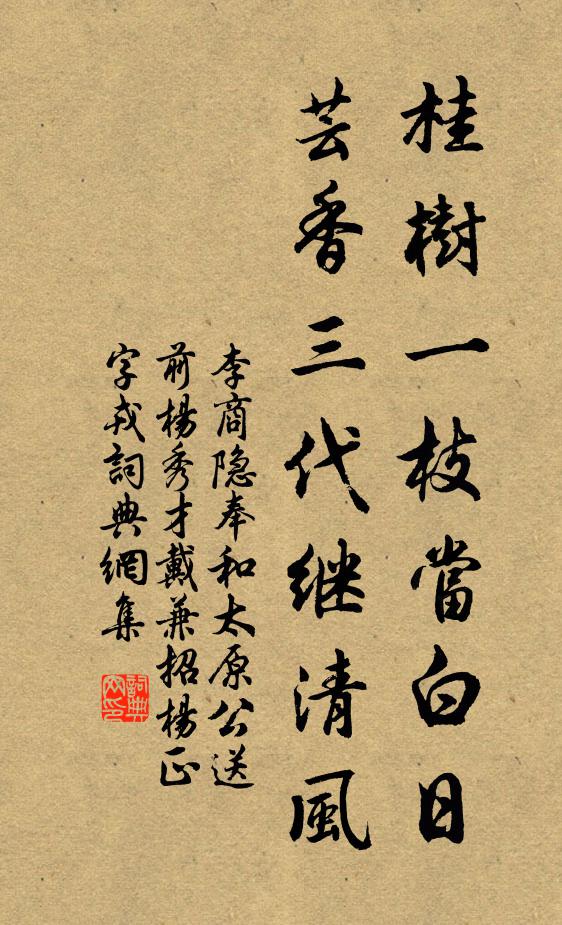 桂樹一枝當白日
芸香三代继清風
李商隐奉和太原公送
前楊秀才戴兼招楊正
字戎詞典網集